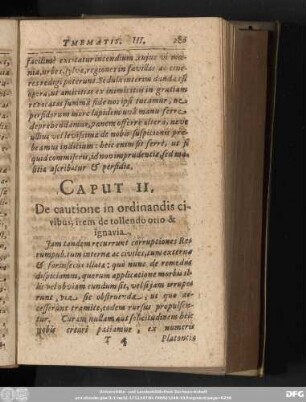 TMEMATIS. III.
facillimè excitatur incendium, cujus vi
nia, urbes, sylvæ, regiones in favillas ac cine-
res redegi poterunt. Sedulò interim danda est
opera, ut amicitias ex inimicitiis in gratiam
revocatas summâ fide nos ipsi tueamur, ne
persidorum more lapidem unâ manu ferre
deprehendamur, panem offerre alterâ: neve
ullius vel levissimæ de nobis suspicionis præ-
beamus inditium: hoc enim se ferre, ut si
quid commissum, id non imprudentia, sed ma-
litia ascribatur & perfidia.
CAPUT II.
De cautione in ordinandis ci-
vibus, Item de tollendo otio &
ignavia.
Jam tandem recurrunt corruptiones Re-
rumpub. tum internæ ac civiles, tum externæ
& forinsecùs illatæ: quò nunc de remediis
dispiciamus, quorum applicatione morbis il-
lis vel obviam eundum sit, vel si jam irrupe-
runt, via sic obstruenda, ut quo ac-
cesserunt tramite, eodem rursus propulsen-
tur. Curam nullam aut solicitudinem heic
nobis creari patiamur, ex numeris
T 4 Platonicis